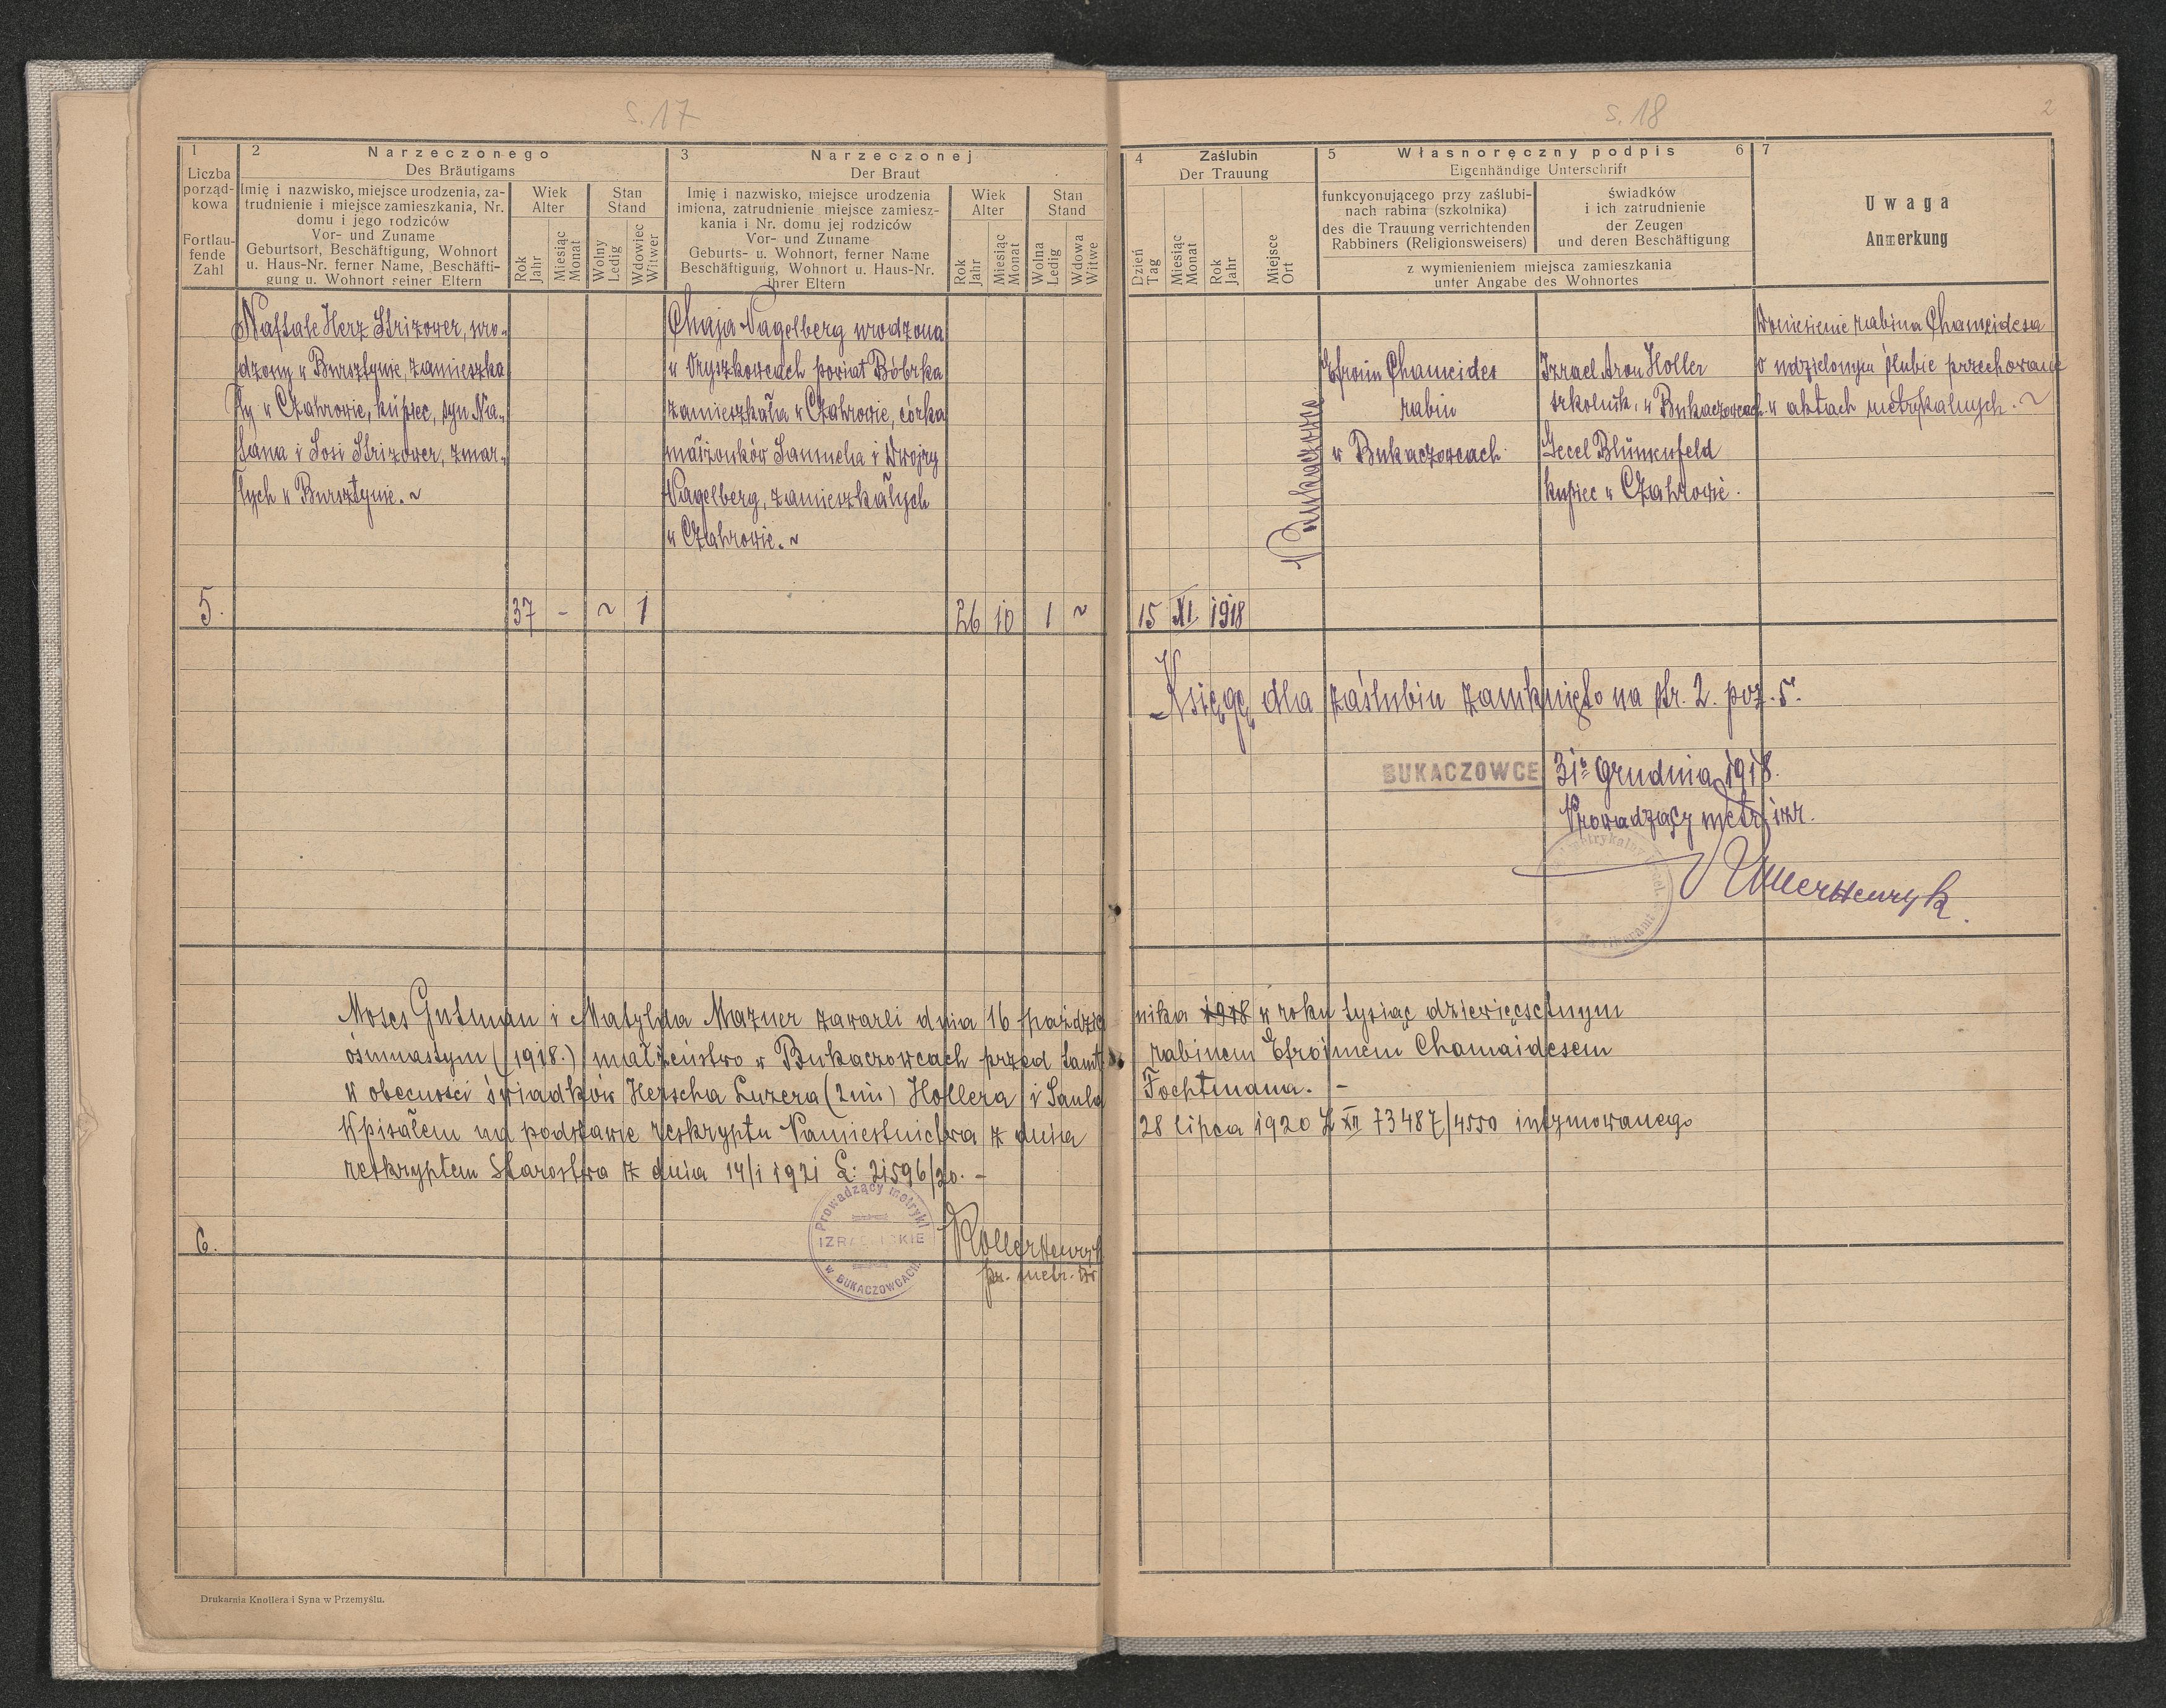 s. 17
1
Liczba
porząd-
kowa
Fortlau-
fende
Zahl
2 Narzeczonego
Des Bräutigams
Imię i nazwisko, miejsce urodzenia, za-
trudnienie i miejsce zamieszkania, Nr.
domu i jego rodziców
Vor- und Zuname
Geburtsort, Beschäftigung, Wohnort
u. Haus-Nr. ferner Name, Beschäfti-
gung u. Wohnort seiner Eltern
Wiek
Alter
Rok
Jahr
Miesiąc
Monat
Stan
Stand
Wolny
Ledig
Wdowiec
Witwer
3 Narzeczonej
Der Braut
Imię i nazwisko, miejsce urodzenia
imiona, zatrudnienie miejsce zamiesz-
kania i Nr. domu jej rodziców
Vor- und Zuname
Geburts- u. Wohnort, ferner Name
Beschäftigung, Wohnort u. Haus-Nr.
ihrer Eltern
Wiek
Alter
Rok
Jahr
Miesiąc
Monat
Stan
Stand
Wolna
Ledig
Wdowa
Witwe
Naftale Herz Strizower, uro-
dzony w Bursztynie, zamieszka
ły w Czahrowie, kupiec, syn Na-
tana i Sosi Strizower, zmar-
łych w Bursztynie. ~
Chaja Nagelberg urodzona
w Oryszkowcach powiat Bóbrka
zamieszkała w Czahrowie, córka
małżonków Samuela i Dwojry
Nagelberg, zamieszkałych
w Czahrowie. ~
5. 37 - ~ 1 26 10 1 ~
s. 18
2
4 Zaślubin
Der Trauung
Dzień
Tag
Miesiąc
Monat
Rok
Jahr
Miejsce
Ort
5 Własnoręczny podpis 6
Eigenhändige Unterschrift
funkcyonującego przy zaślubi-
nach rabina (szkolnika)
des die Trauung verrichtenden
Rabbiners (Religionsweisers)
świadków
i ich zatrudnienie
der Zeugen
und deren Beschäftigung
z wymienieniem miejsca zamieszkania
unter Angabe des Wohnortes
7
Uwaga
Anmerkung
Bukaczowce
Efroim Chameides
rabin
w Bukaczowcach
Izrael Aron Holler
szkolnik, w Bukaczowcach
Gecel Blumenfeld
kupiec w Czahrowie.
Doniesienie rabina Chameidesa
o udzielonym ślubie przechowane
w aktach metrykalnych. ~
15 XI 1918
Księgę dla zaślubin zamknięto na str. 2. poz. 5.
BUKACZOWCE 31go Grudnia 1918.
Prowadzący metr. izr.
Henryk
Moses Gutman i Matylda Mazner zawarli dnia 16 paździer nika 1918 w roku tysiąc dziewięcsetnym
ósmnastym (1918.) małżeństwo w Bukaczowcach przed tamt. rabinem Efroimem Chamaidesem
w obecności świadków Herscha Luzera (2im) Hollera i Saula Fochtmana. -
Wpisałem na podstawie reskryptu Namiestnictwa z dnia 28 lipca 1920 L XII 73487/4550 intymowanego
reskryptem Starostwa z dnia 14/1 1921 L: 21596/20. -
6.
Prowadzący metryki
IZRAELICKIE
w BUKACZOWCACH
Holler Henryk
pr. metr. izr
Drukarnia Knollera i Syna w Przemyślu.